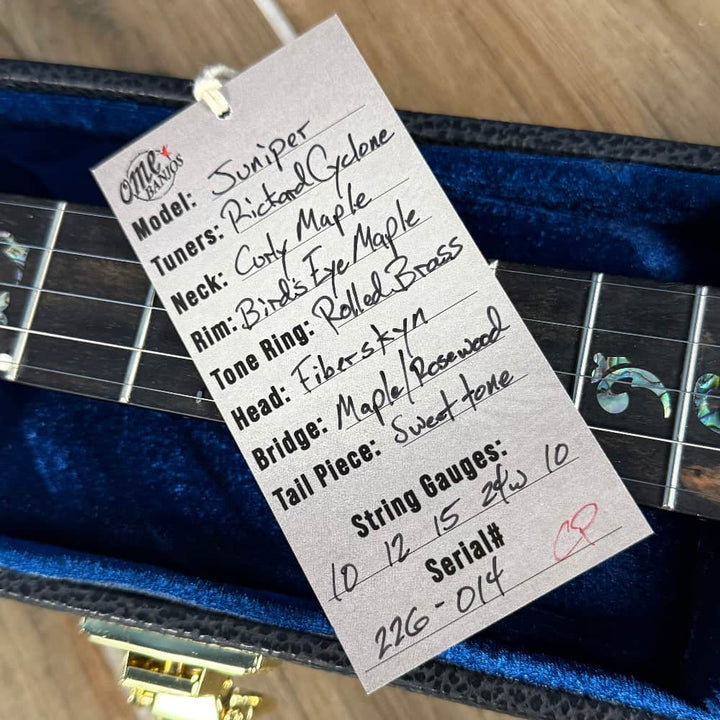 ome
BANJOS
Model: Juniper
Tuners: Rickard Cyclone
Neck: Curly Maple
Rim: Bird's Eye Maple
Tone Ring: Rolled Brass
Head: Fiberskyn
Bridge: Maple/Rosewood
Tail Piece: Sweet tone
String Gauges:
10 12 15 24w 10
Serial#
226-014
CP